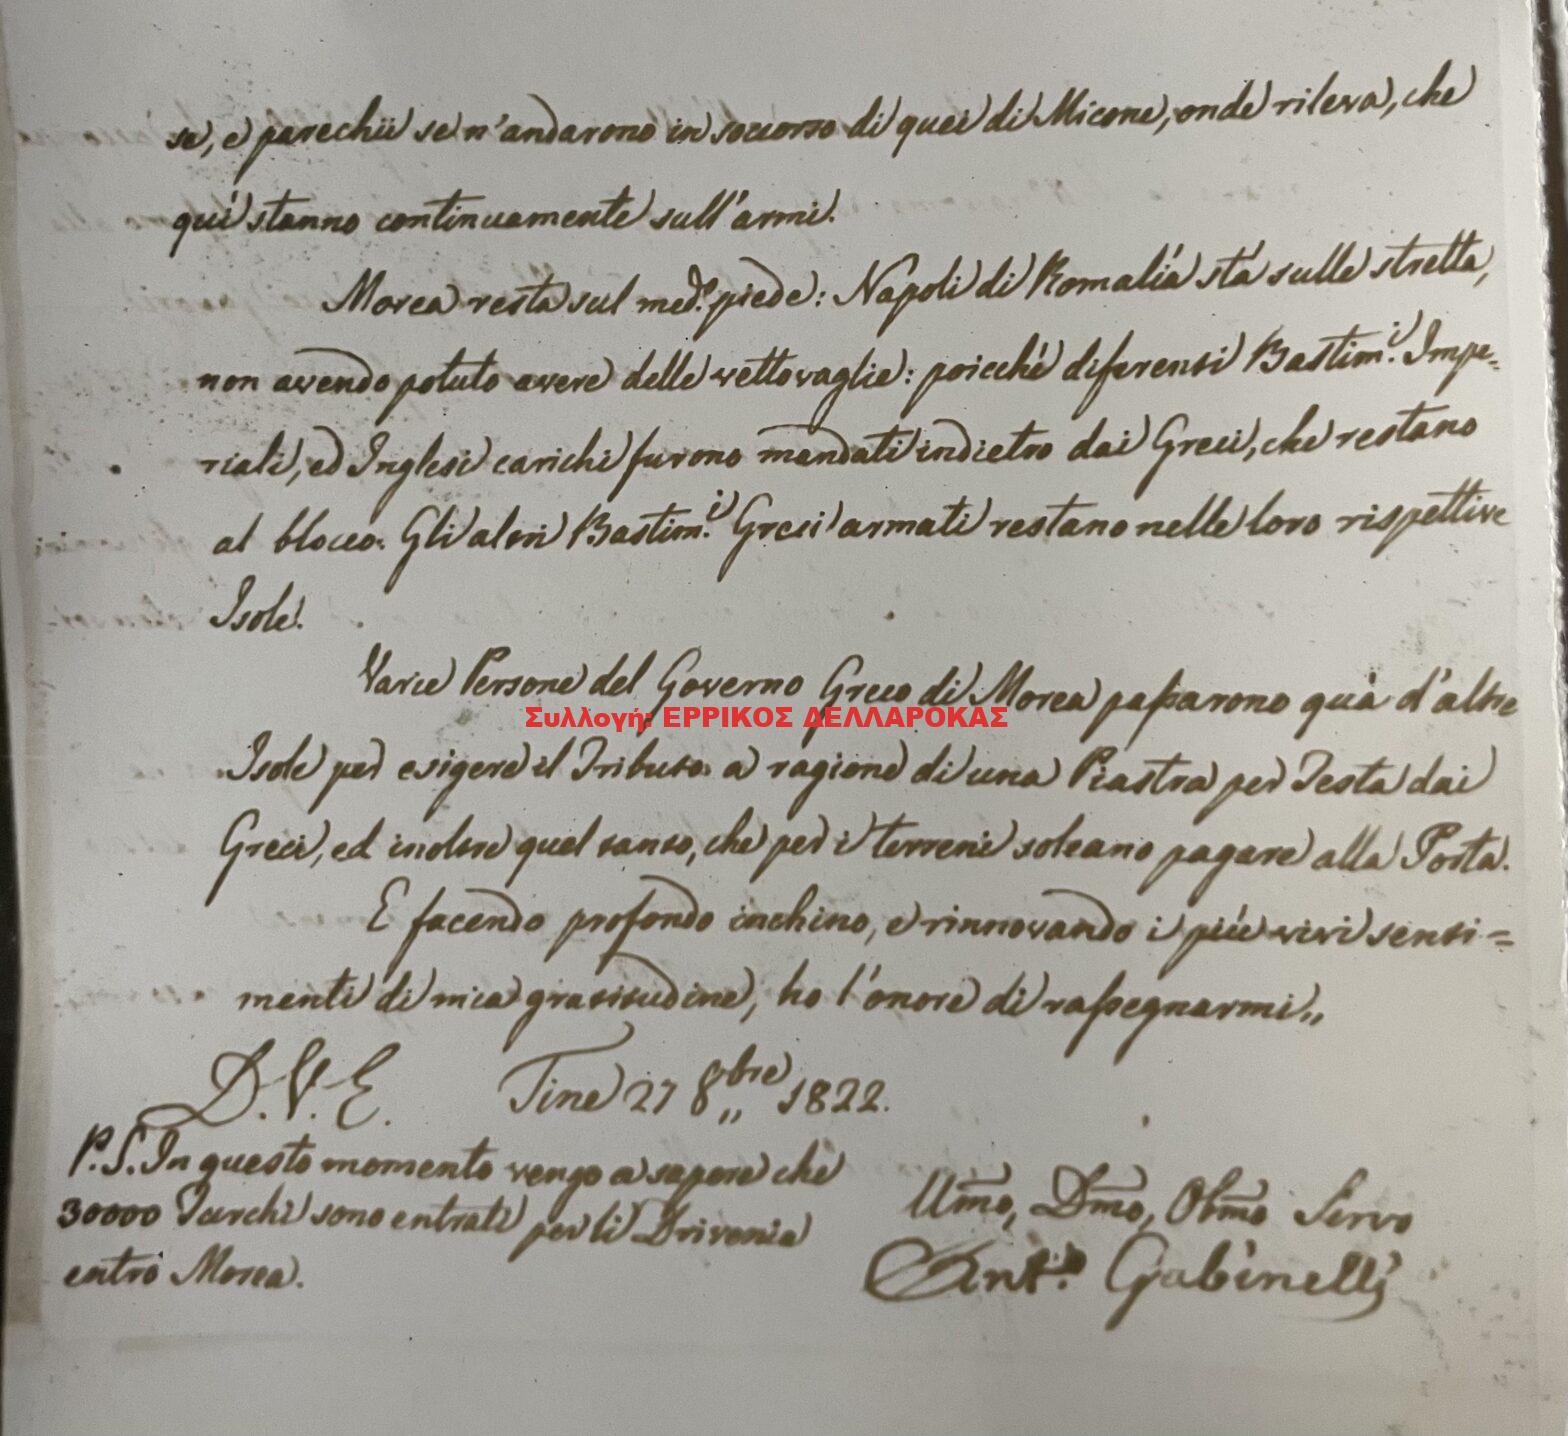 se, e parechii se n'andarono in socorso di quei di Micone, onde rileva, che
qui stanno continuamente sull'armi.
Morea resta sul med.º piede: Napoli di Romalía stá sulle strette,
non avendo potuto avere delle vettovaglie: poicché diferensi Bastim.i Impe-
riali, ed Inglesi carichi furono mandati indietro dai Greci, che restano
al blocco. Gli altri Bastim.i Greci armati restano nelle loro rispettive
Isole.
Varie Persone del Governo Greco di Morea passarono quà d'altre
Συλλογή: ΕΡΡΙΚΟΣ ΔΕΛΛΑΡΟΚΑΣ
Isole per esigere il Tributo a ragione di una Piastra per Testa dai
Greci, ed inoltre quel tanto, che per i terreni soleano pagare alla Porta.
E facendo profondo inchino, e rinnovando i più vivi senti=
menti di mia gratitudine, ho l'onore di rassegnarmi,,
D. V. E. Tine 27 8bre 1822.
P.S. In questo momento vengo a sapere che
30000 Turchi sono entrati per li
entro Morea.
Umo, Dmo, Obmo Servo
Ant.º Gabinelli